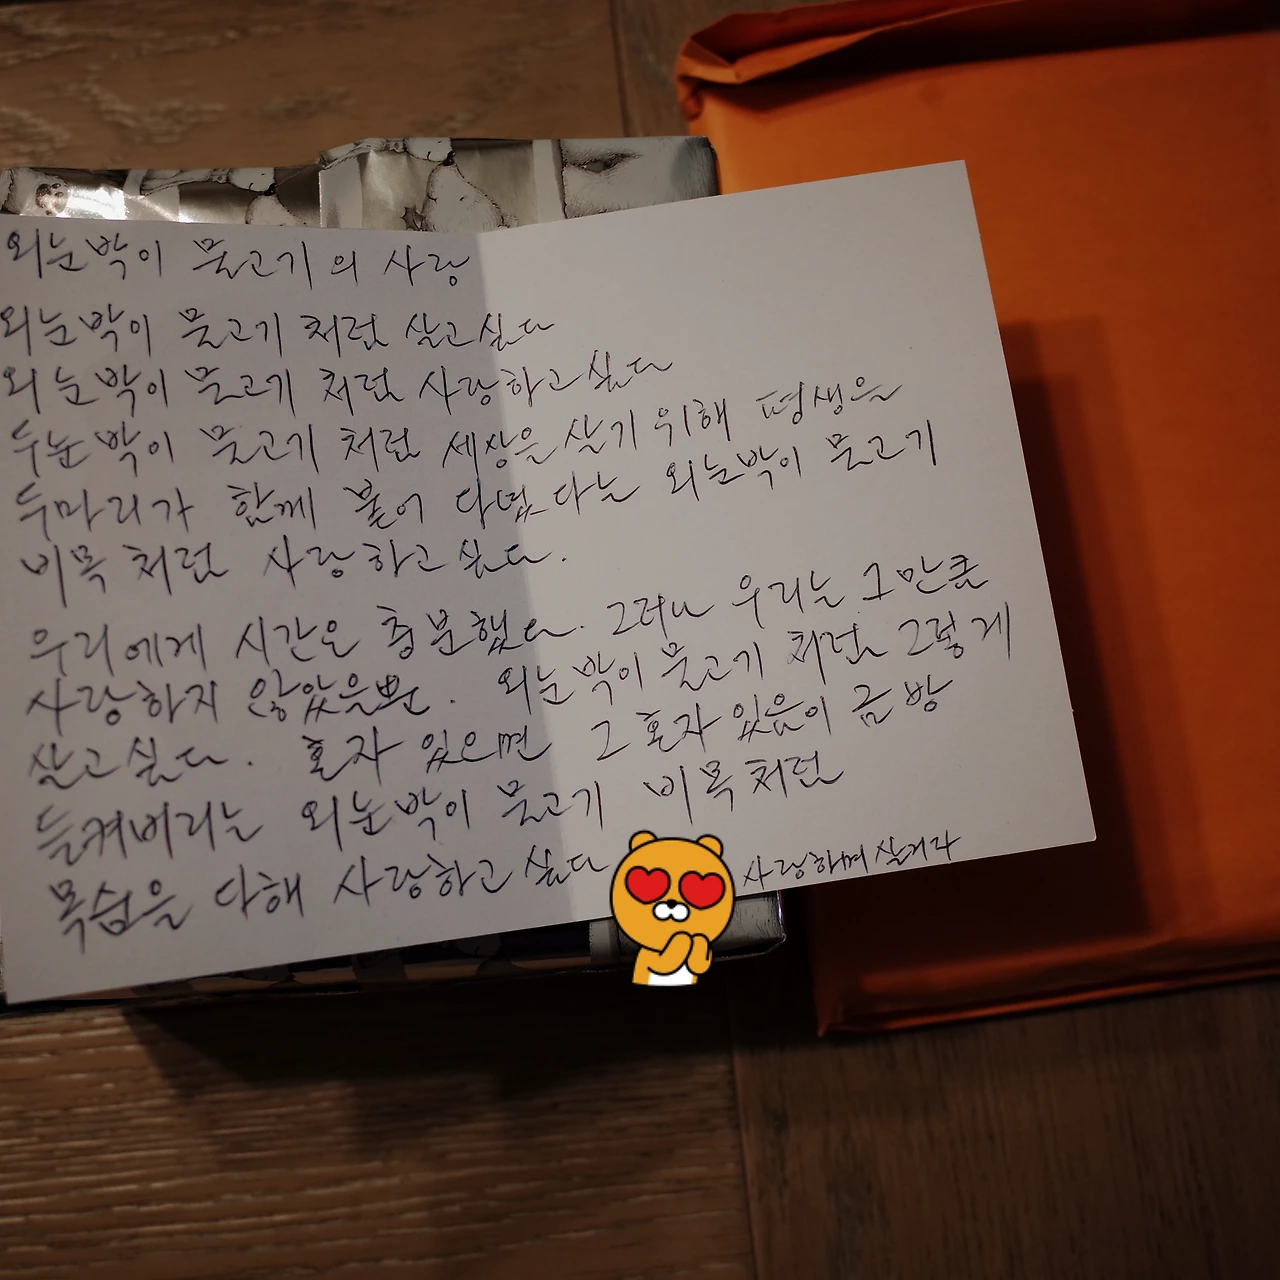 외눈박이 물고기의 사랑
외눈박이 물고기 처럼 살고싶다
외눈박이 물고기 처럼 사랑하고싶다
두눈박이 물고기 처럼 세상을 살기 위해 평생을
두마리가 함께 붙어 다녔다는 외눈박이 물고기
비목 처럼 사랑하고 싶다.
우리에게 시간은 충분했다. 그러나 우리는 그만큼
사랑하지 않았을뿐. 외눈박이 물고기 처럼 그렇게
살고싶다. 혼자 있으면 그 혼자 있음이 금방
들켜버리는 외눈박이 물고기 비목처럼
목숨을 다해 사랑하고 싶다
사랑하며 살거라